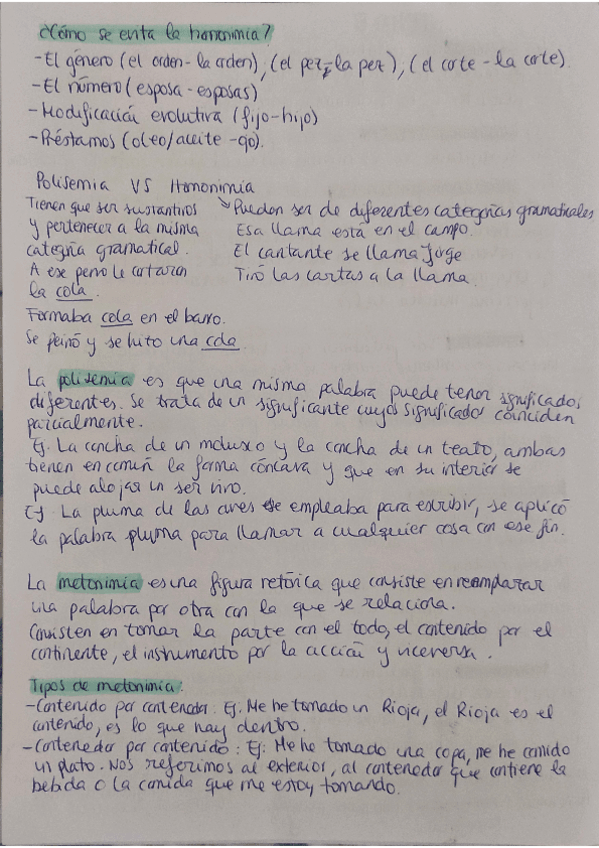 ¿Cómo se evita la homonimia?
- El género (el orden - la orden), (el pez - la pez), (el corte - la corte).
- El número (esposa - esposas)
- Modificación evolutiva (fijo - hijo)
- Préstamos (oleo/aceite - ojo).
Polisemia VS Homonimia
Tienen que ser sustantivos
y pertenecer a la misma
categría gramatical.
A ese perro le cortaron
la cola.
Formaba cola en el barro.
Se peinó y se hizo una cola
Pueden ser de diferentes categrías gramaticales
Esa llama está en el campo.
El cantante se llama Jorge
Tiró las cartas a la llama.
La polisemia es que una misma palabra puede tener significados
diferentes. Se trata de un significante cuyos significados coinciden
parcialmente.
Ej. La concha de un molusco y la concha de un teatro, ambas
tienen en común la forma cóncava y que en su interior se
puede alojar un ser vivo.
Ej La pluma de las aves se empleaba para escribir, se aplicó
la palabra pluma para llamar a cualquier cosa con ese fin.
La metonimia es una figura retórica que consiste en reemplazar
una palabra por otra con la que se relaciona.
Consisten en tomar la parte con el todo, el contenido por el
continente, el instrumento por la acción y viceversa.
Tipos de metonimia:
- Contenido por contenedor: Ej. Me he tomado un Rioja, el Rioja es el
contenido, es lo que hay dentro.
- Contenedor por contenido: Ej: Me he tomado una copa, me he comido
un plato. Nos referimos al exterior, al contenedor que contiene la
bebida o la comida que me estoy tomando.